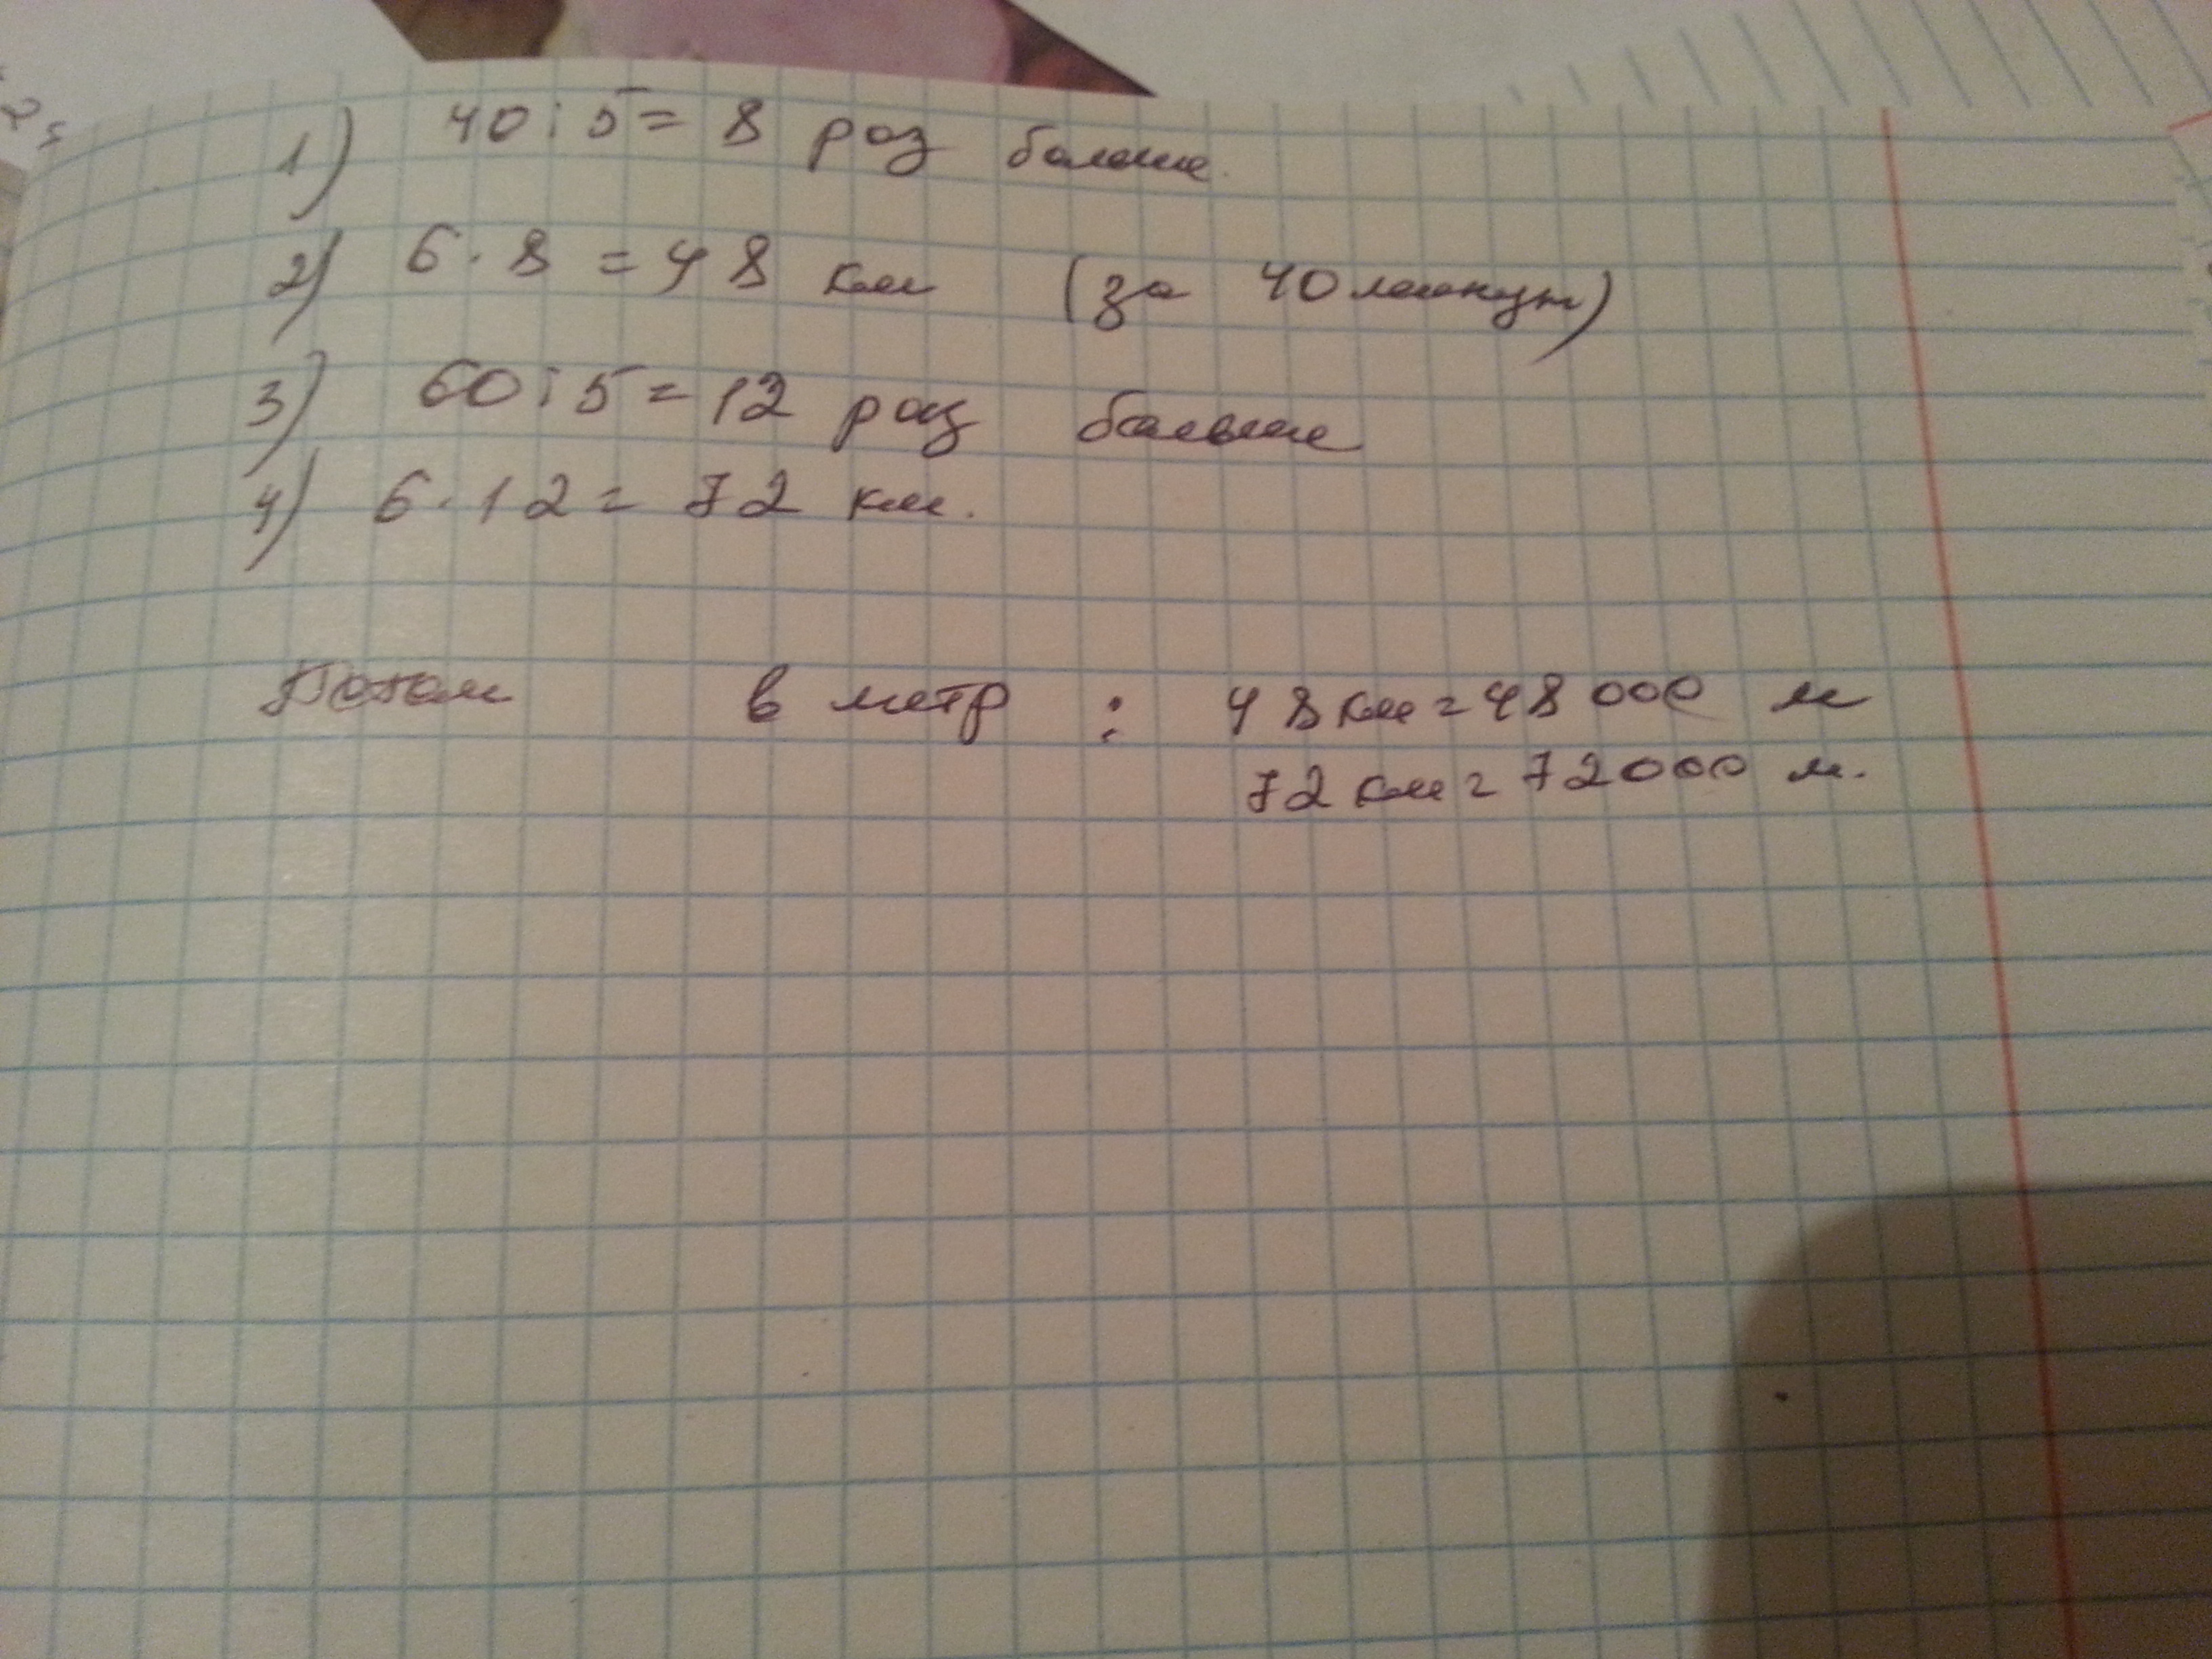 1) 40 : 5 = 8 раз больше.
2) 6 · 8 = 48 км (за 40 минут)
3) 60 : 5 = 12 раз больше
4) 6 · 12 = 72 км.
Потом в метр : 48 км = 48 000 м
72 км = 72000 м.